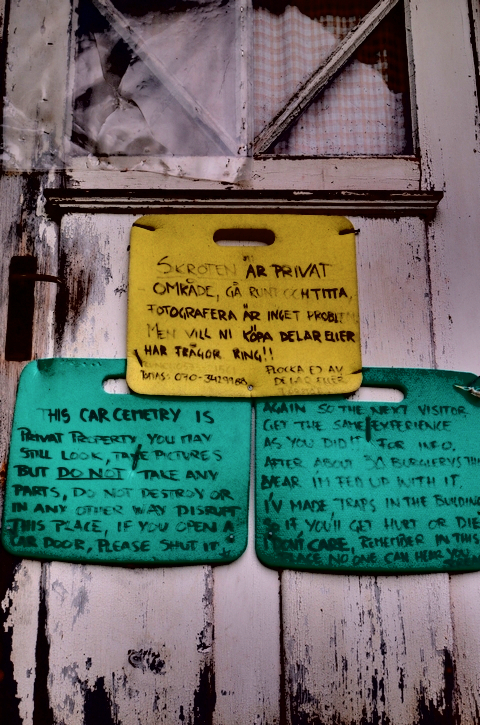 "SKROTEN" ÄR PRIVAT
OMRÅDE, GÅ RUNT OCH TITTA,
FOTOGRAFERA ÄR INGET PROBLEM
MEN VILL NI KÖPA DELAR ELLER
HAR FRÅGOR RING!!
PLOCKA EJ AV
TOMAS: 070-3429788 DELAR ELLER
THIS CAR CEMETRY IS
PRIVAT PROPERTY, YOU MAY
STILL LOOK, TAKE PICTURES
BUT DO NOT TAKE ANY
PARTS, DO NOT DESTROY OR
IN ANY OTHER WAY DISRUPT
THIS PLACE, IF YOU OPEN A
CAR DOOR, PLEASE SHUT IT
AGAIN SO THE NEXT VISITOR
GET THE SAME EXPERIENCE
AS YOU DID IT FOR INFO,
AFTER ABOUT 30 BURGLERYS THIS
YEAR IM FED UP WITH IT.
I'V MADE TRAPS IN THE BUILDING
SO IF YOU'LL GET HURT OR DIE
I DON'T CARE, REMEMBER IN THIS
PLACE NO ONE CAN HEAR YOU